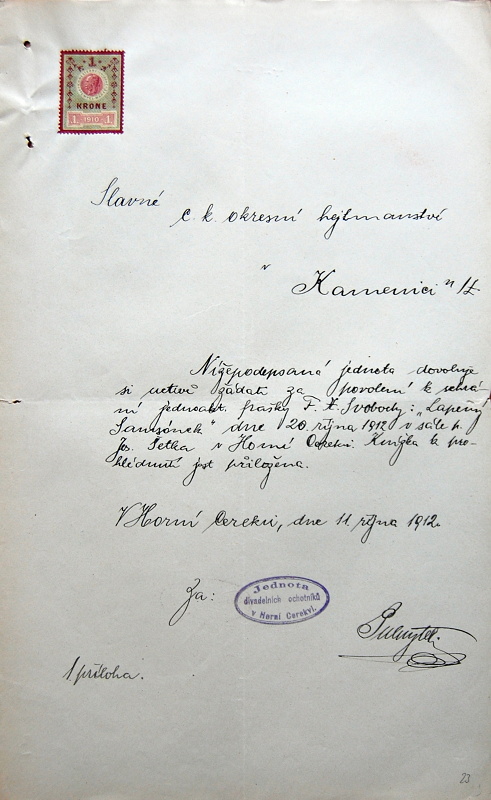 1
KRONE
1 1910 1
Slavné
c. k. okresní hejtmanství
v
Kamenici n/L.
Nížepodepsaná jednota dovoluje
si uctivě žádati za povolení k sehrá
ní jednoakt. frašky F. X. Svobody: „Lapený
Samsónek" dne 20. října 1912 v sále p.
Jos. Petka v Horní Cerekvi. Knížka k pro-
hlédnutí jest přiložena.
V Horní Cerekvi, dne 11. října 1912.
Za:
Jednota
divadelních ochotníků
v Horní Cerekvi.
1 příloha.
23